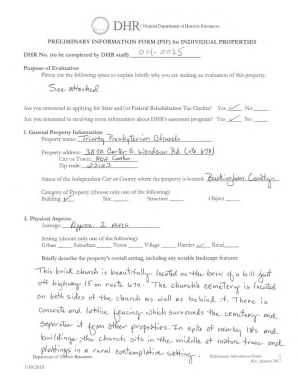 DHR | Virginia Department of Historic Resources
PRELIMINARY INFORMATION FORM (PIF) for INDIVIDUAL PROPERTIES
DHR No. (to be completed by DHR staff) 014-0025
Purpose of Evaluation
Please use the following space to explain briefly why you are seeking an evaluation of this property.
See attached
Are you interested in applying for State and/or Federal Rehabilitation Tax Credits? Yes ✓ No
Are you interested in receiving more information about DHR's easement program? Yes ✓ No
1. General Property Information
Property name: Trinity Presbyterian Church
Property address: 3879 Carter G. Woodson Rd. (rte. 670)
City or Town: New Canton
Zip code: 23123
Name of the Independent City or County where the property is located: Buckingham County
Category of Property (choose only one of the following):
Building ✓ Site Structure Object
2. Physical Aspects
Acreage: Approx. 2 acres
Setting (choose only one of the following):
Urban Suburban Town Village Hamlet ✓ Rural
Briefly describe the property's overall setting, including any notable landscape features:
This brick church is beautifully located on the brow of a hill just
off highway 15 on route 670. The church's cemetery is located
on both sides of the church as well as behind it. There is
concrete and lattice fencing which surrounds the cemetery and
separates it from other properties. In spite of nearby lots and
buildings, the church sits in the middle of mature trees and
plantings in a rural contemplative setting.
Department of Historic Resources
1/30/2018
Preliminary Information Form 1
Rev. January 2017